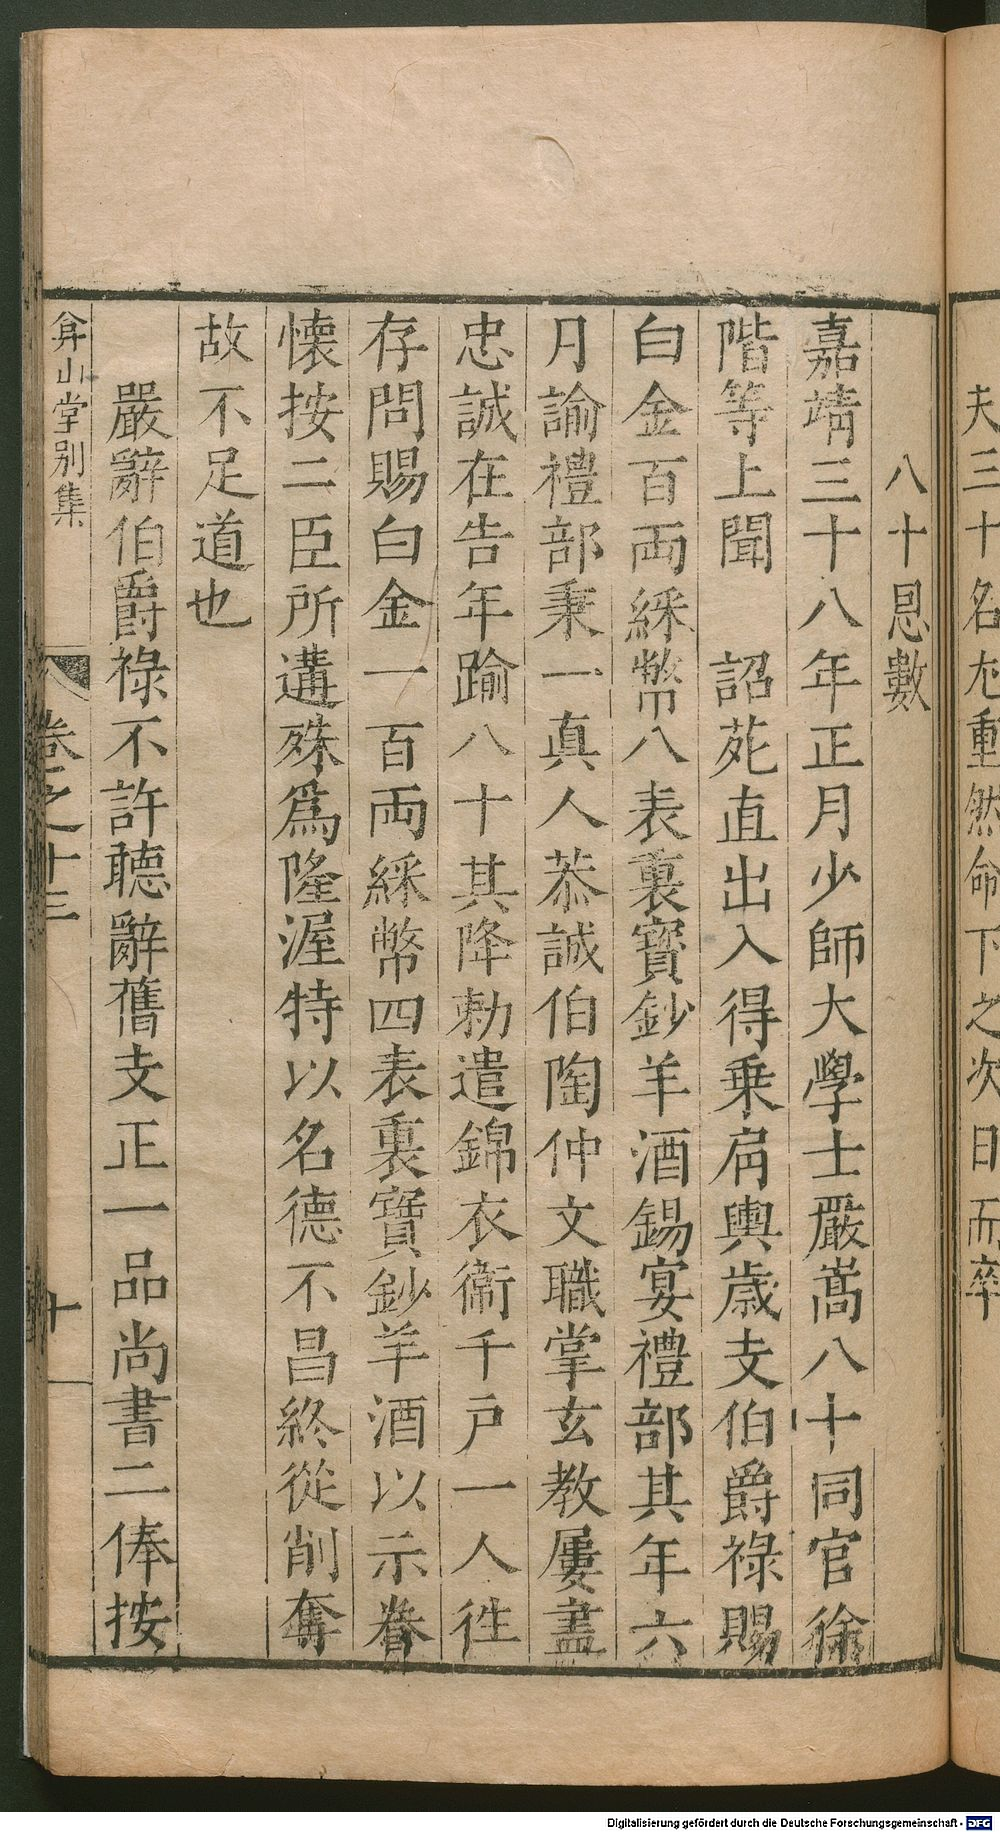 夫三十名尤重然命下之次日而卒
八十恩數
嘉靖三十八年正月少師大學士嚴嵩八十同官徐
階等上聞　詔苑直出入得乗肩輿歳支伯爵祿賜
白金百両綵幣八表裏寳鈔羊酒錫宴禮部其年六
月諭禮部秉一真人恭誠伯陶仲文職掌玄教屢盡
忠誠在告年踰八十其降勅遣錦衣衞千戸一人徃
存問賜白金一百両綵幣四表裏寳鈔羊酒以示眷
懐按二臣所遘殊爲隆渥特以名德不昌終從削奪
故不足道也
嚴辭伯爵祿不許聴辭舊支正一品尚書二俸按
弇山堂别集
卷之十三
十
Digitalisierung gefördert durch die Deutsche Forschungsgemeinschaft - DFG